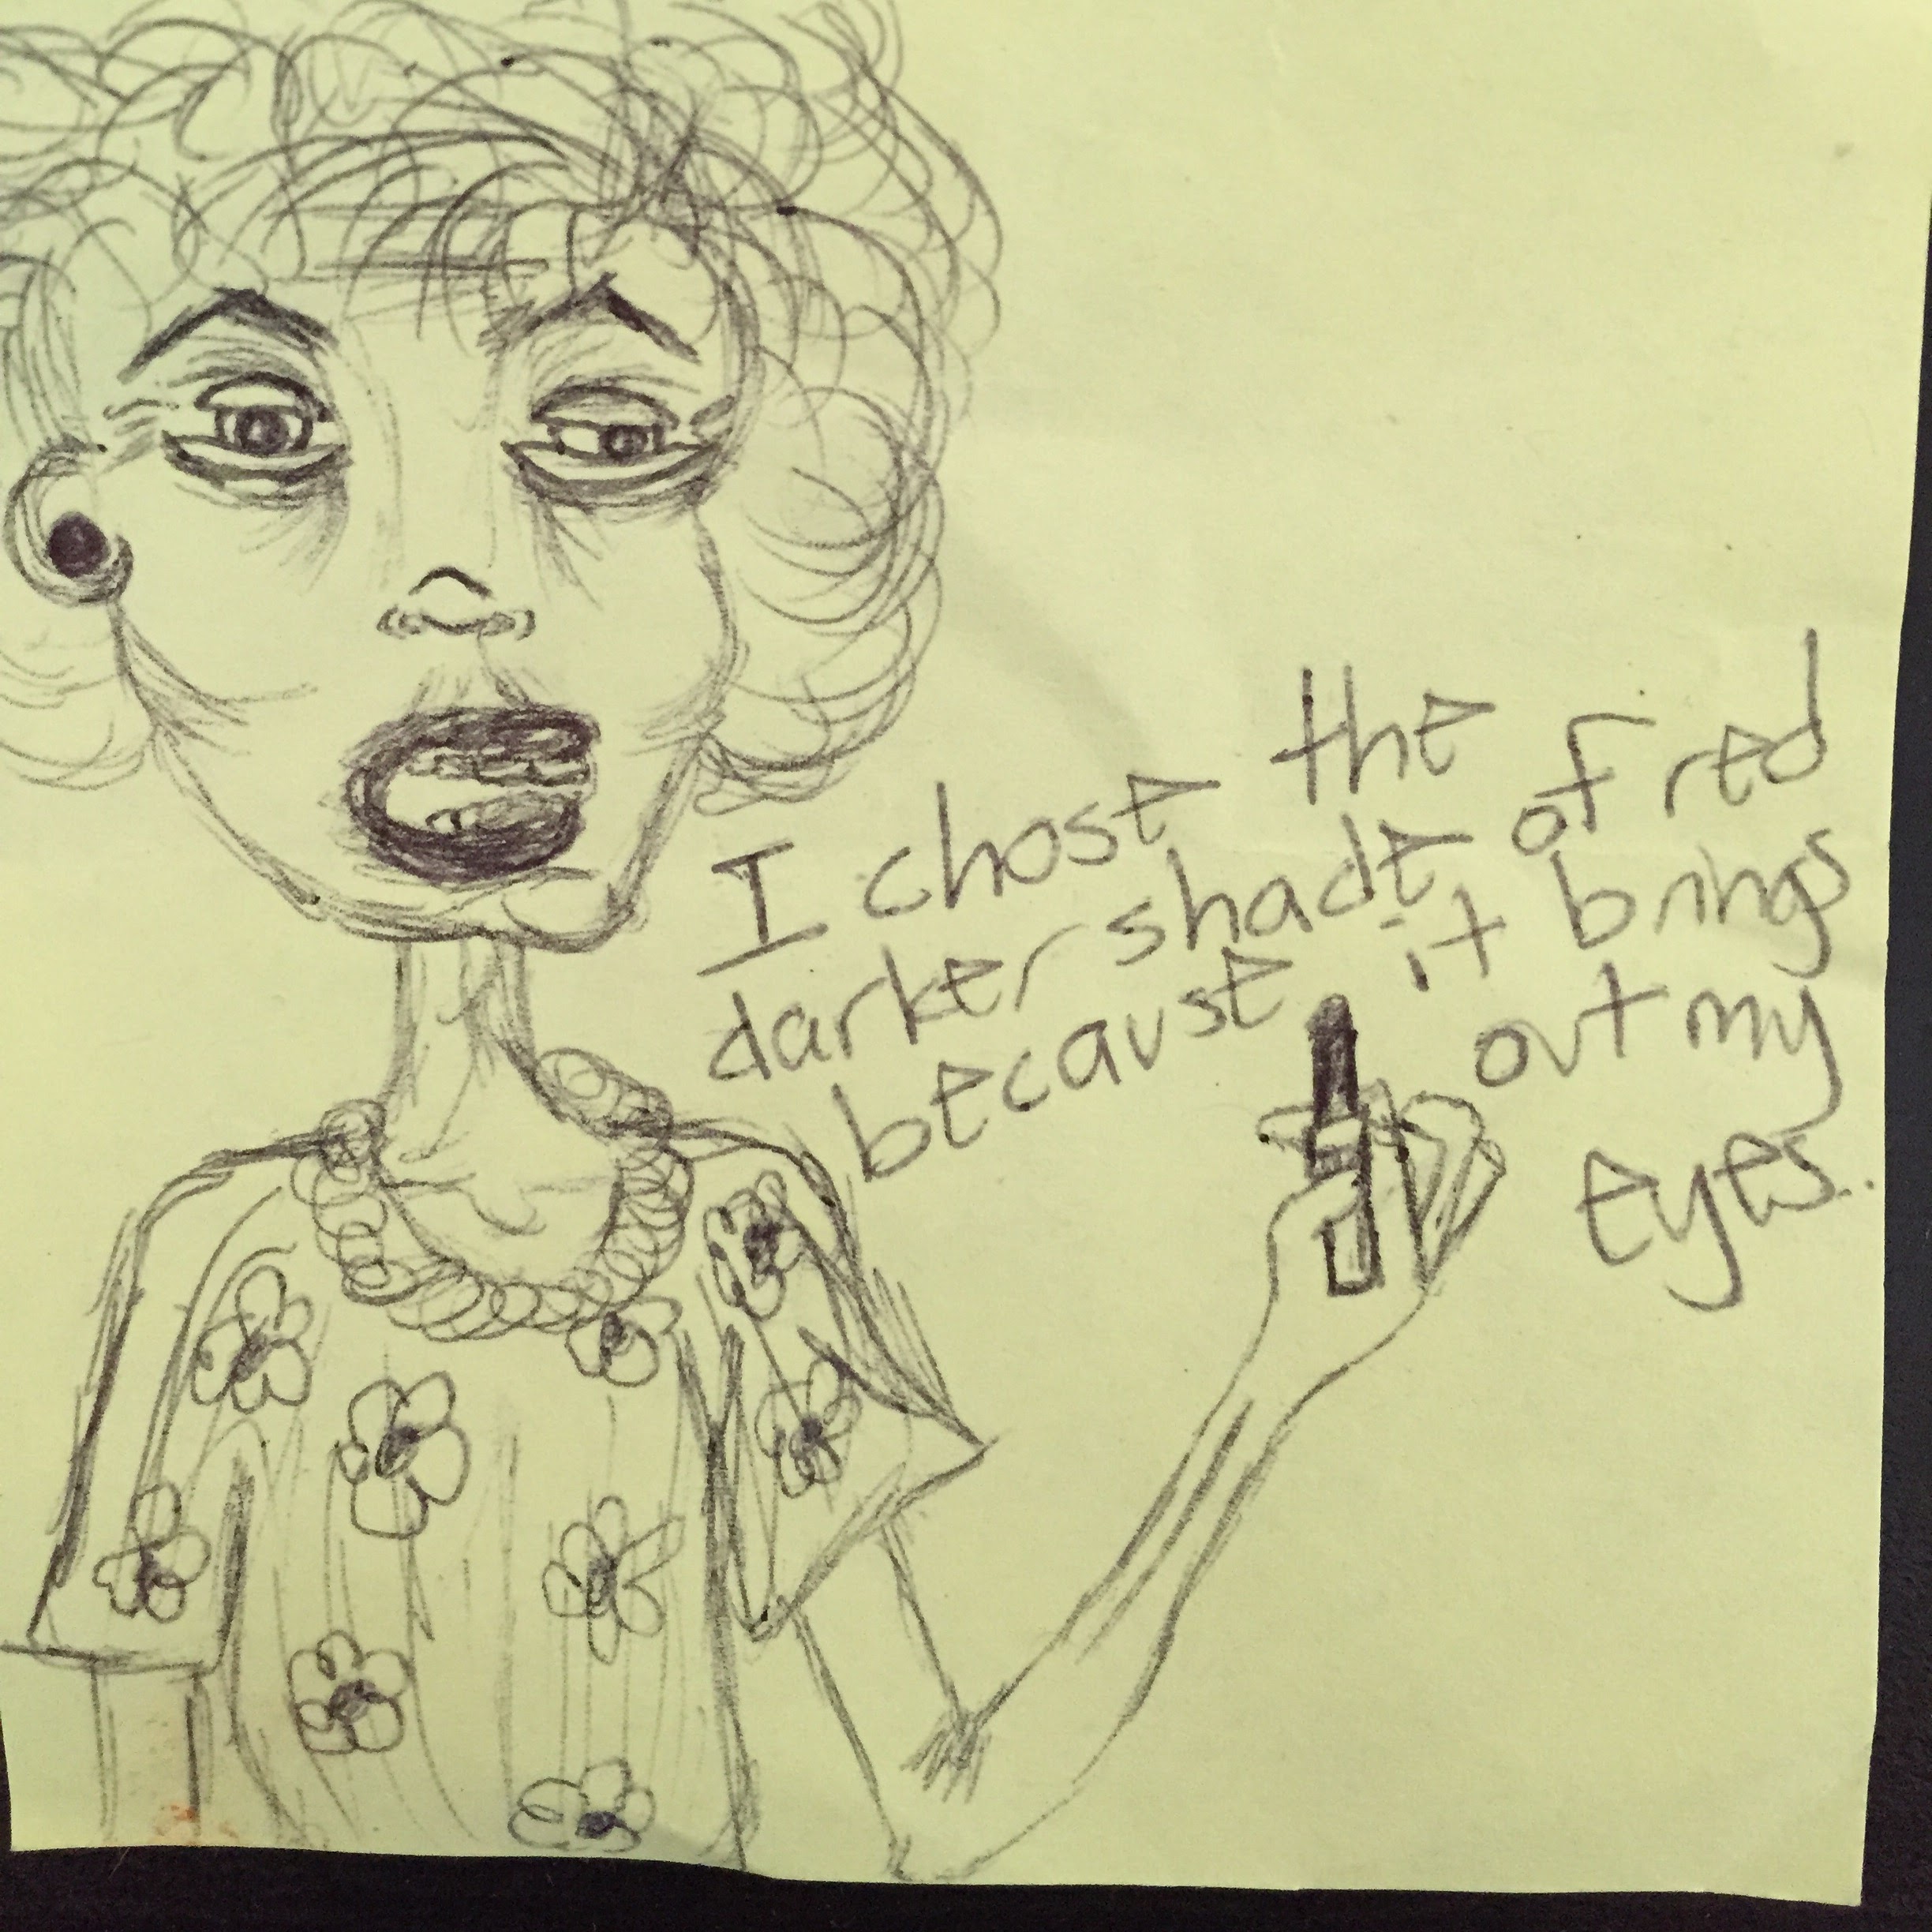 I chose the
darker shade of red
because it brings
out my
eyes..